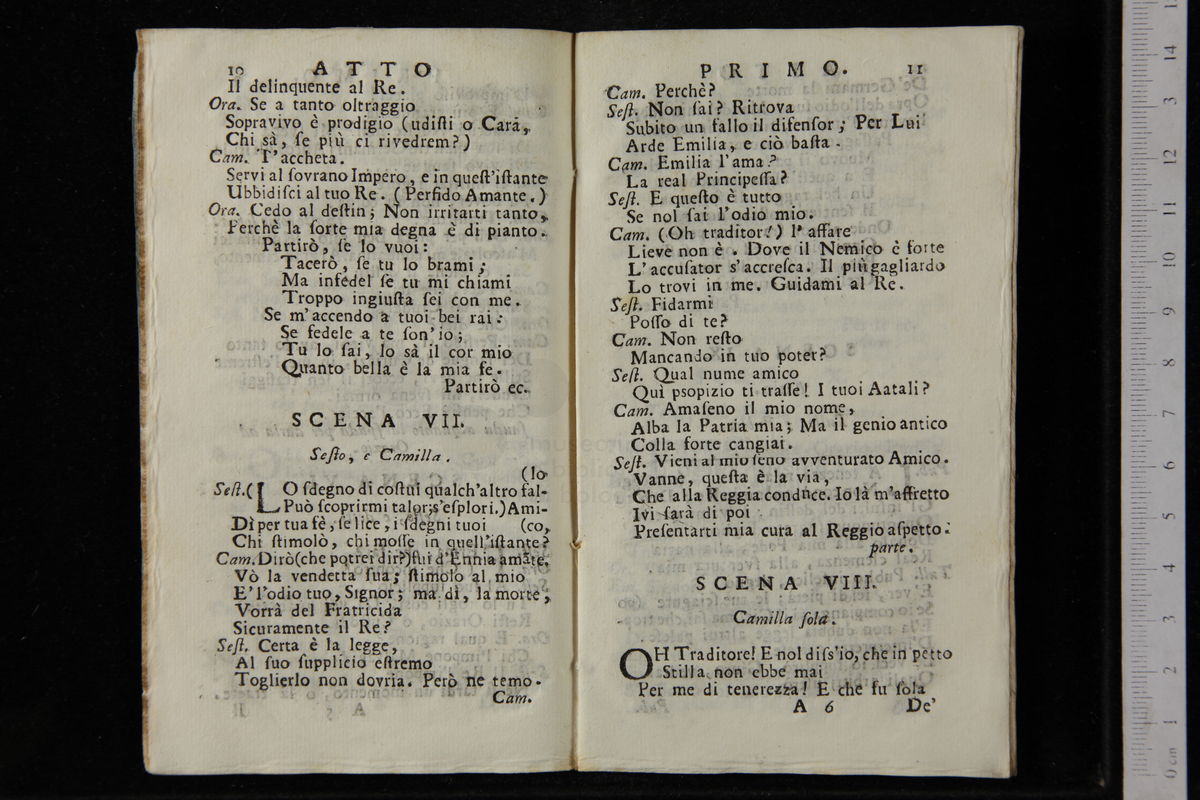 10 ATTO
Il delinquente al Re.
Ora. Se a tanto oltraggio
Sopravivo è prodigio (udiſti o Cara,
Chi sà, ſe più ci rivedrem?)
Cam. T'accheta.
Servi al ſovrano Impero, e in queſt'iſtante
Ubbidiſci al tuo Re. (Perfido Amante.)
Ora. Cedo al deſtin; Non irritarti tanto,
Perchè la ſorte mia degna è di pianto.
Partirò, ſe lo vuoi:
Tacerò, ſe tu lo brami;
Ma infedel ſe tu mi chiami
Troppo ingiuſta ſei con me.
Se m'accendo a tuoi bei rai:
Se fedele a te ſon'io;
Tu lo ſai, lo sà il cor mio
Quanto bella è la mia fe.
Partirò ec.
SCENA VII.
Seſto, e Camilla.
(lo
Seſt. (LO ſdegno di coſtui qualch'altro fal-
Può ſcoprirmi talor; s'eſplori.) Ami-
Dì per tua fè, ſe lice, i ſdegni tuoi (co,
Chi ſtimolò, chi moſſe in quell'iſtante?
Cam. Dirò (che potrei dir?) fui d'Ennia amāte,
Vò la vendetta ſua; ſtimolo al mio
E' l'odio tuo, Signor; ma dì, la morte,
Vorrà del Fratricida
Sicuramente il Re?
Seſt. Certa è la legge,
Al ſuo ſupplicio eſtremo
Toglierlo non dovria. Però ne temo.
Cam.
PRIMO. 11
Cam. Perchè?
Seſt. Non ſai? Ritrova
Subito un fallo il difenſor; Per Lui
Arde Emilia, e ciò baſta.
Cam. Emilia l'ama?
La real Principeſſa?
Seſt. E queſto è tutto
Se nol ſai l'odio mio.
Cam. (Oh traditor!) l'affare
Lieve non è. Dove il Nemico è forte
L'accuſator s'accreſca. Il più gagliardo
Lo trovi in me. Guidami al Re.
Seſt. Fidarmi
Poſſo di te?
Cam. Non reſto
Mancando in tuo poter?
Seſt. Qual nume amico
Quì psopizio ti traſſe! I tuoi Aatali?
Cam. Amaſeno il mio nome,
Alba la Patria mia; Ma il genio antico
Colla ſorte cangiai.
Seſt. Vieni al mio ſeno avventurato Amico.
Vanne, queſta è la via,
Che alla Reggia conduce. Io là m'affretto
Ivi ſarà di poi
Preſentarti mia cura al Reggio aſpetto.
parte.
SCENA VIII.
Camilla ſola.
OH Traditore! E nol diſs'io, che in petto
Stilla non ebbe mai
Per me di tenerezza! E che fu ſola
A 6 De'